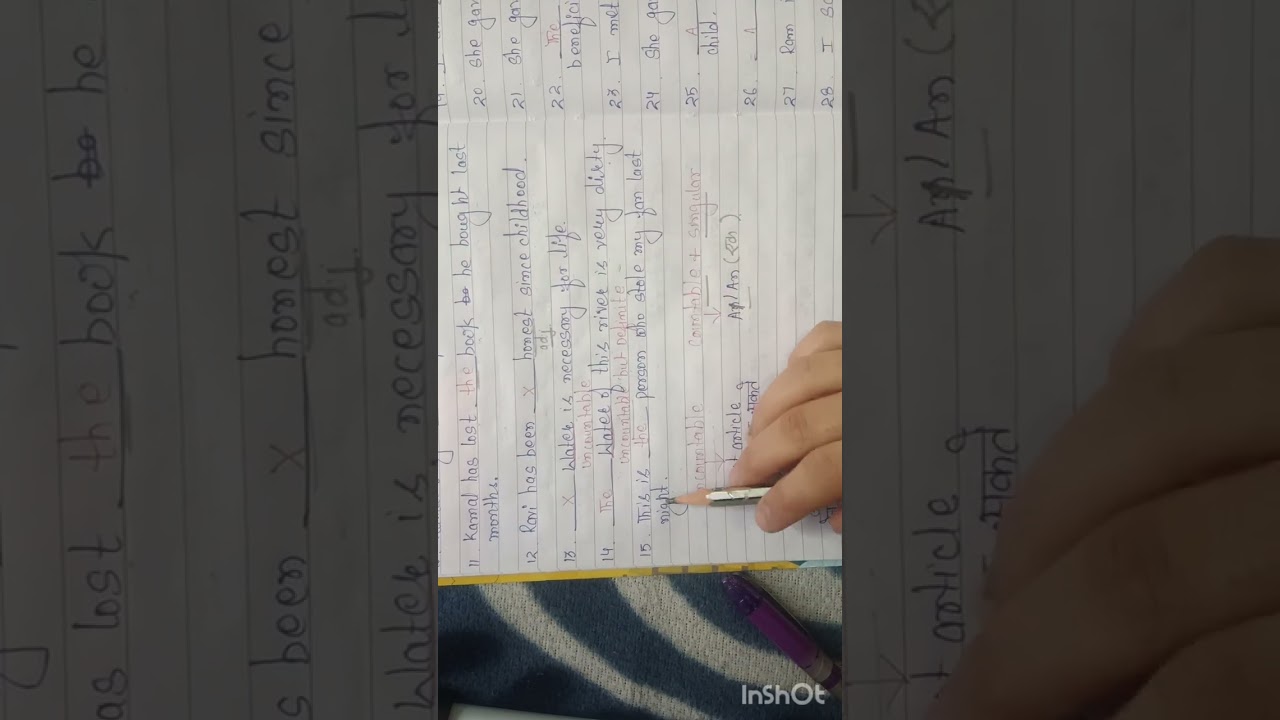 11 Kamal has lost the book he bought last
months.
12 Ravi has been X honest since childhood.
adj
13. X Water is necessary for life.
uncountable
14. The Water of this river is very dirty.
uncountable but definite
15. This is the person who stole my fan last
night.
countable + singular
article
A/An (एक)
20. She
21. She
22. The
23. I met
24 She
25. A
child.
26. A
27 Ram
28. I
InShOt